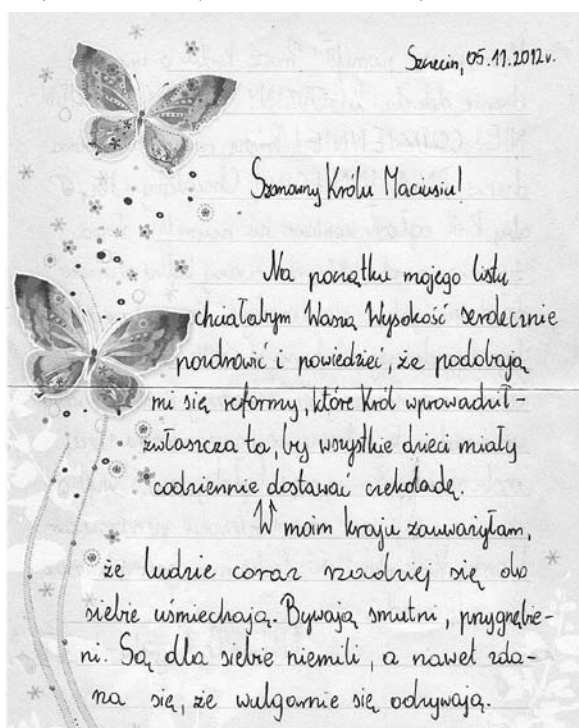 Szczecin, 05.11.2012r.
Szanowny Królu Maciusiu!
Na początku mojego listu
chciałabym Waszą Wysokość serdecznie
pozdrowić i powiedzieć, że podobają
mi się reformy, które Król wprowadził -
zwłaszcza ta, by wszystkie dzieci miały
codziennie dostawać czekoladę.
W moim kraju zauważyłam,
że ludzie coraz rzadziej się do
siebie uśmiechają. Bywają smutni, przygnębie-
ni. Są dla siebie niemili, a nawet zda-
rza się, że wulgarnie się odzywają.